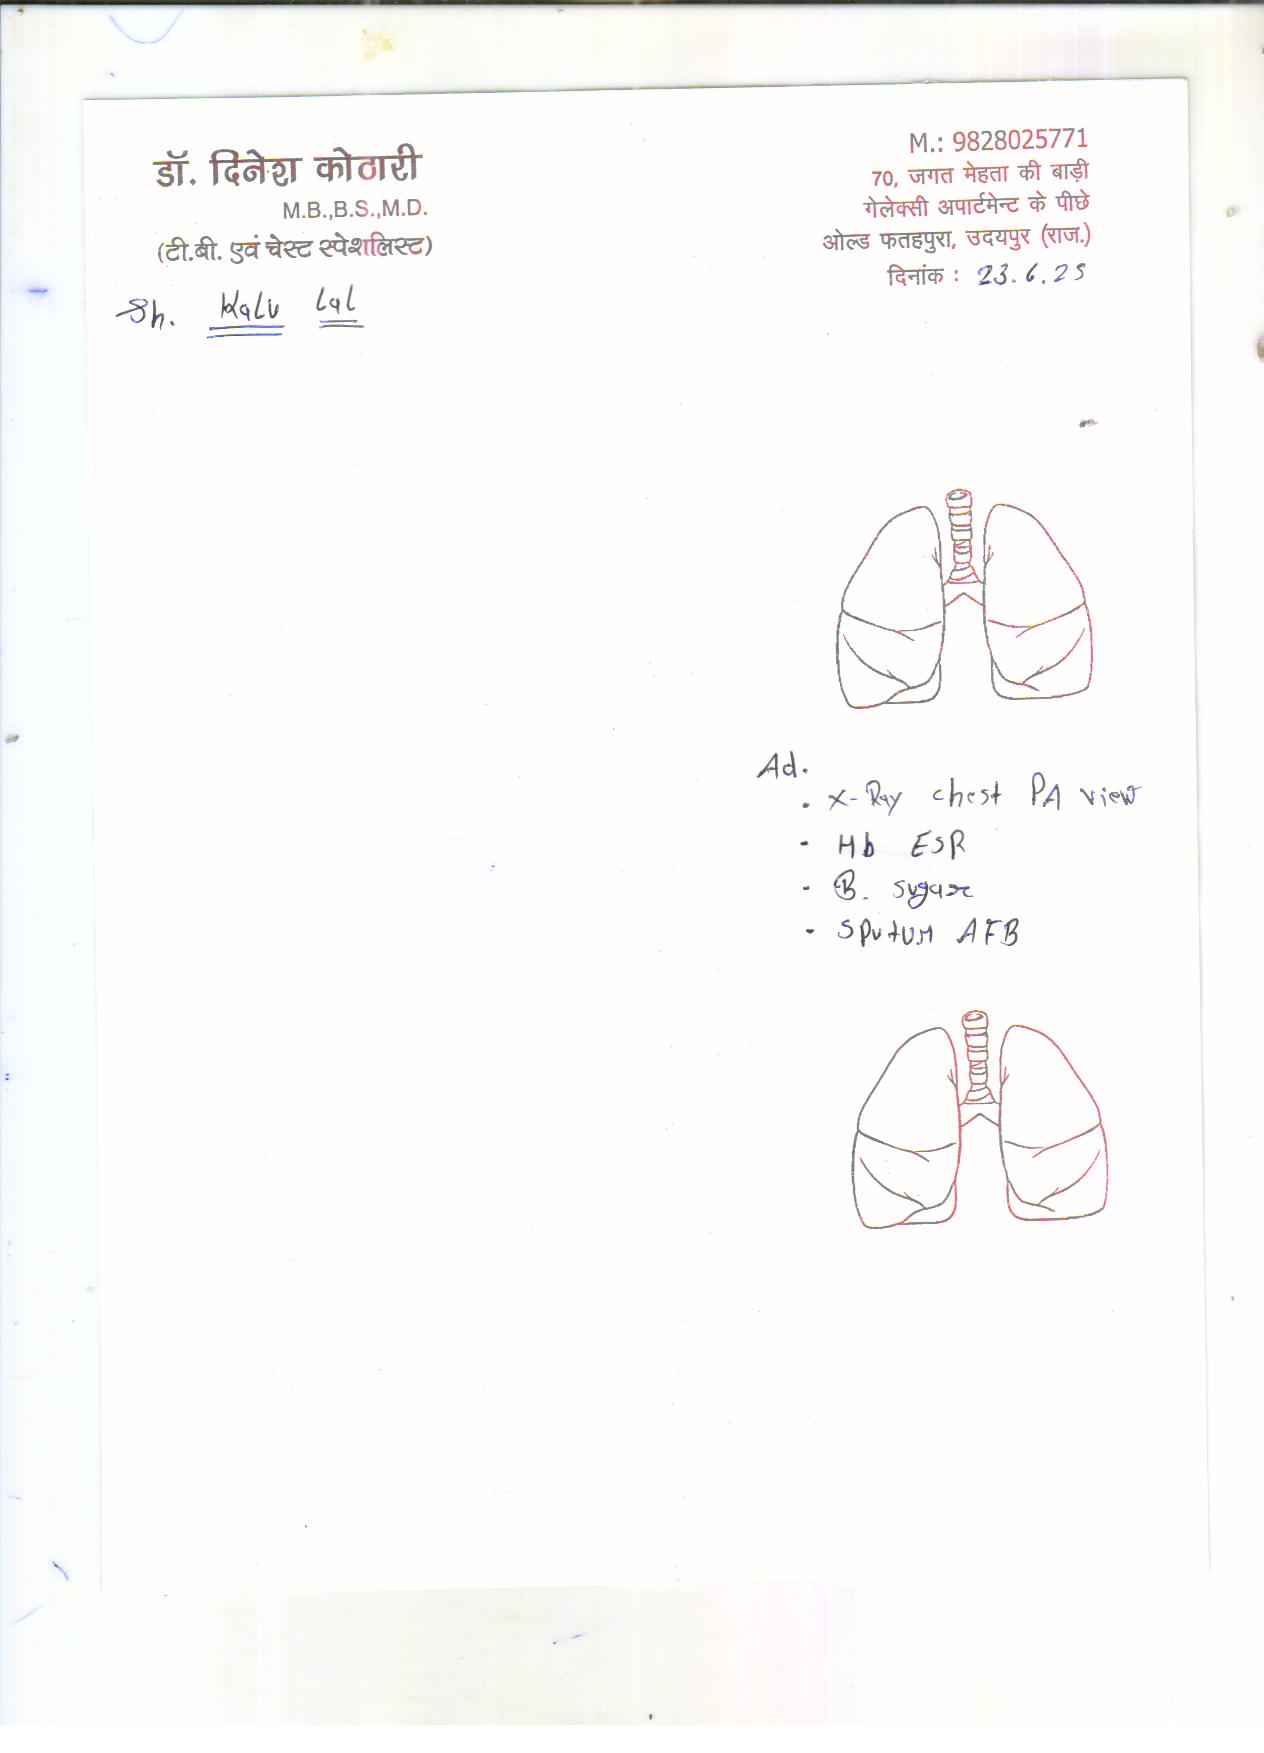 डॉ. दिनेश कोठारी
M.B.,B.S.,M.D.
(टी.बी. एवं चेस्ट स्पेशलिस्ट)
M.: 9828025771
70, जगत मेहता की बाड़ी
गेलेक्सी अपार्टमेन्ट के पीछे
ओल्ड फतहपुरा, उदयपुर (राज.)
दिनांक : 23.6.25
Sh. Kalu Lal
Ad.
. X-Ray chest PA view
- Hb ESR
- B. sugar
- Sputum AFB